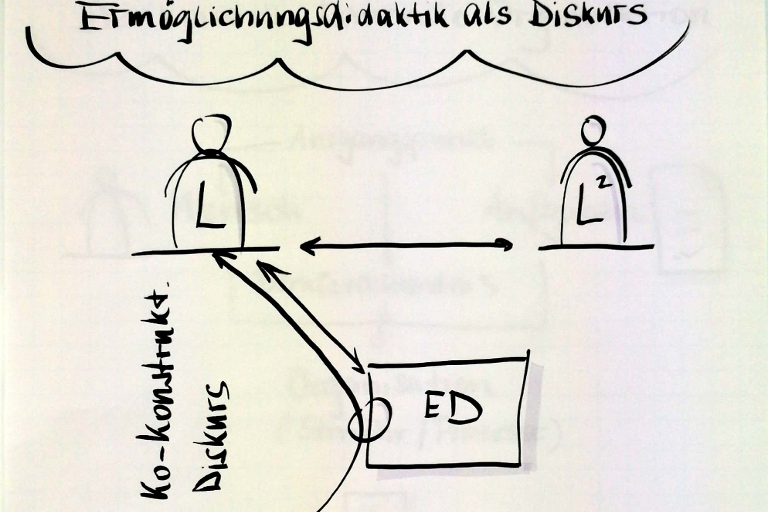 Ermöglichungsdidaktik als Diskurs
L
L²
Ko-Konstrukt.
Diskurs
ED